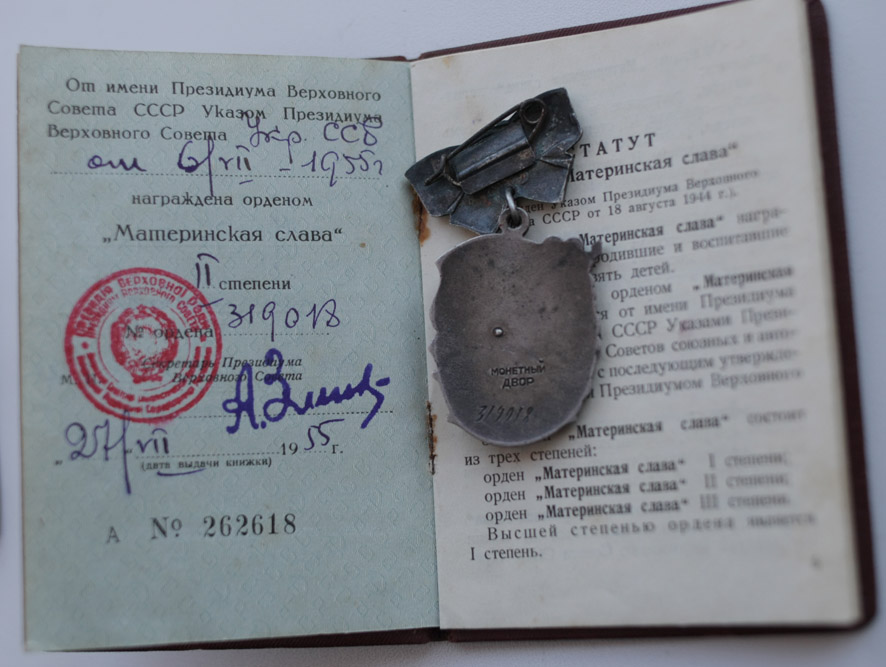 От имени Президиума Верховного
Совета СССР Указом Президиума
Верховного Совета Укр. ССР
от 6/VII - 1955г
награждена орденом
„Материнская слава“
II степени
№ ордена 319018
Секретарь Президиума
Верховного Совета
„27/VII 1955 г.
(дата выдачи книжки)
А № 262618
МОНЕТНЫЙ
ДВОР
ТАТУТ
Материнская слава“
Указом Президиума Верховного
СССР от 18 августа 1944 г.).
„Материнская слава“ награ-
и воспитавшие
детей.
орденом „Материнская
от имени Президиума
СССР Указами Прези-
Советов союзных и авто-
с последующим утвержде-
Президиумом Верховного
„Материнская слава“ состоит
из трех степеней:
орден „Материнская слава“ I степени;
орден „Материнская слава“ II степени;
орден „Материнская слава“ III степени.
Высшей степенью ордена является
I степень.